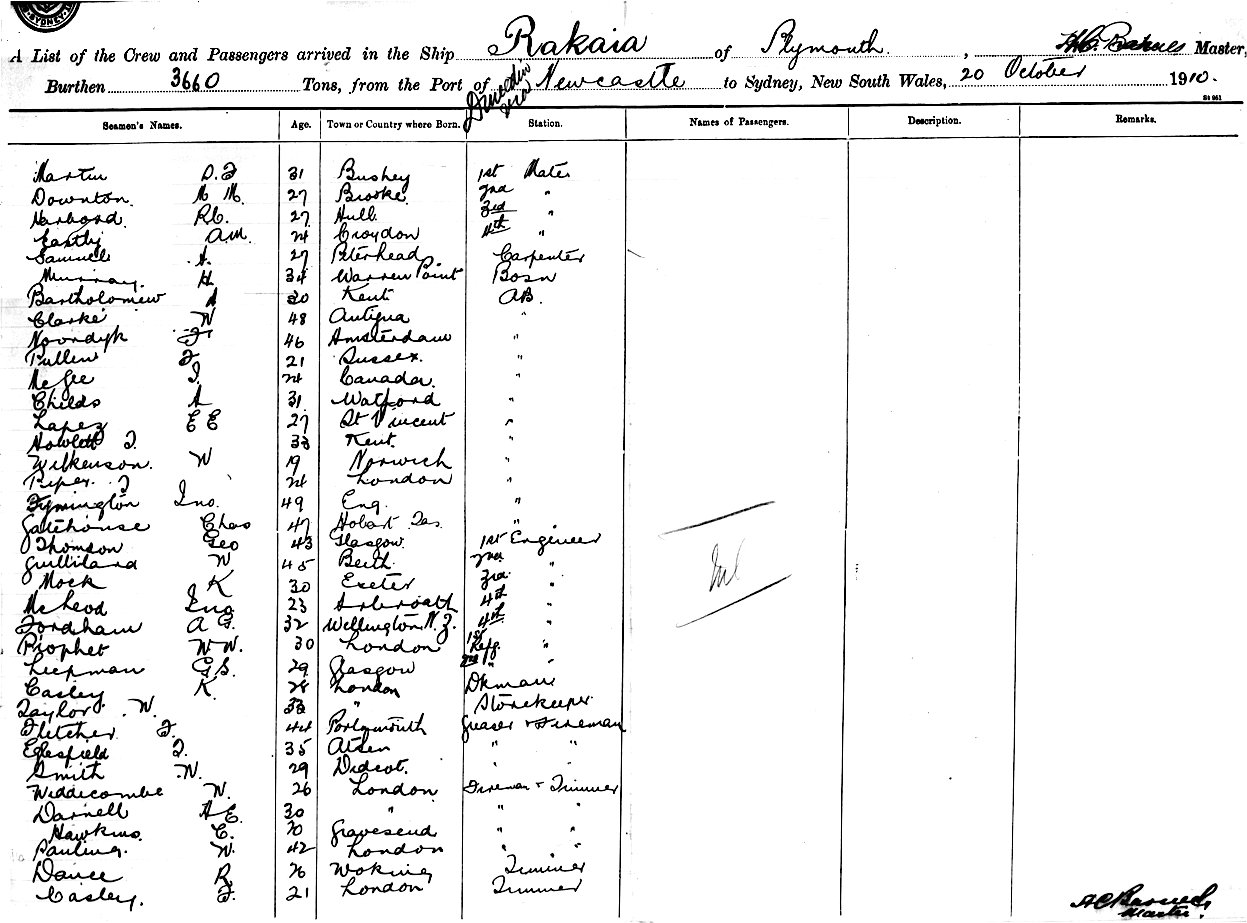 SYDNEY
A List of the Crew and Passengers arrived in the Ship Rakaia of Plymouth, Master,
Burthen 3660 Tons, from the Port of Dunedin via Newcastle to Sydney, New South Wales, 20 October 1910.
St 961
Seamen's Names. Age. Town or Country where Born. Station. Names of Passengers. Description. Remarks.
Martin D.J 31 Bushey 1st Mate
Downton M M. 27 Brooke 2nd "
Harbord. 27 Hull 3rd "
Eastly A.M. 24 Croydon 4th "
Samuels A. 27 Peterhead. Carpenter
Murray. H. 34 Warren Point Bosn
Bartholomew A 20 Kent AB.
Clarke W 48 Antigua "
Noordyk F 46 Amsterdam "
Pullen F 21 Sussex. "
McGee J. 24 Canada. "
Childs A 31 Watford "
Lapez E E 27 St Vincent "
Howlett J. 33 Kent. "
Wilkenson. W 19 Norwich "
Piper. J 24 London "
Jno. 49 Eng. "
Gatehouse Chas 47 Hobart Tas. "
Thomson Geo 43 Glasgow. 1st Engineer
Gulliland W 45 2nd "
Mock K 30 Exeter 3rd "
McLeod 23 Arbroath 4th "
Fordham A G. 32 Wellington N.Z. 4th "
Prophet W W. 30 London 1st Refg. "
Leepman G S. 29 Glasgow 2nd " "
Casley K. 28 London Dkman
Taylor. W. 33 " Storekeeper
Fletcher J. 44 Portsmouth Greaser & Fireman
Eglesfield J. 35 " "
Smith W. 29 Didcot. " "
Widdicombe W. 26 London Fireman & Trimmer
Darnell A E. 30 " " "
Hawkins. C. 20 Gravesend " "
Pauling. W. 42 London " "
Dance R 26 Woking Trimmer
Casley. J. 21 London Trimmer
Nil
Master.